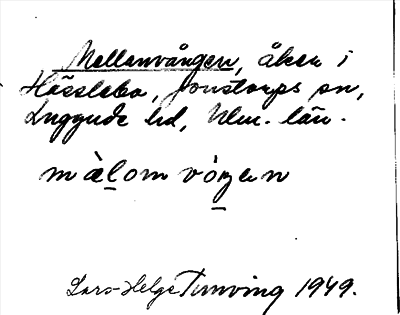 Mellanvången, åker i
Hässlebo, Jonstorps sn,
Luggude hd, Mlm. län.
màlom vóŋen
Lars-Helge Tunving 1949.